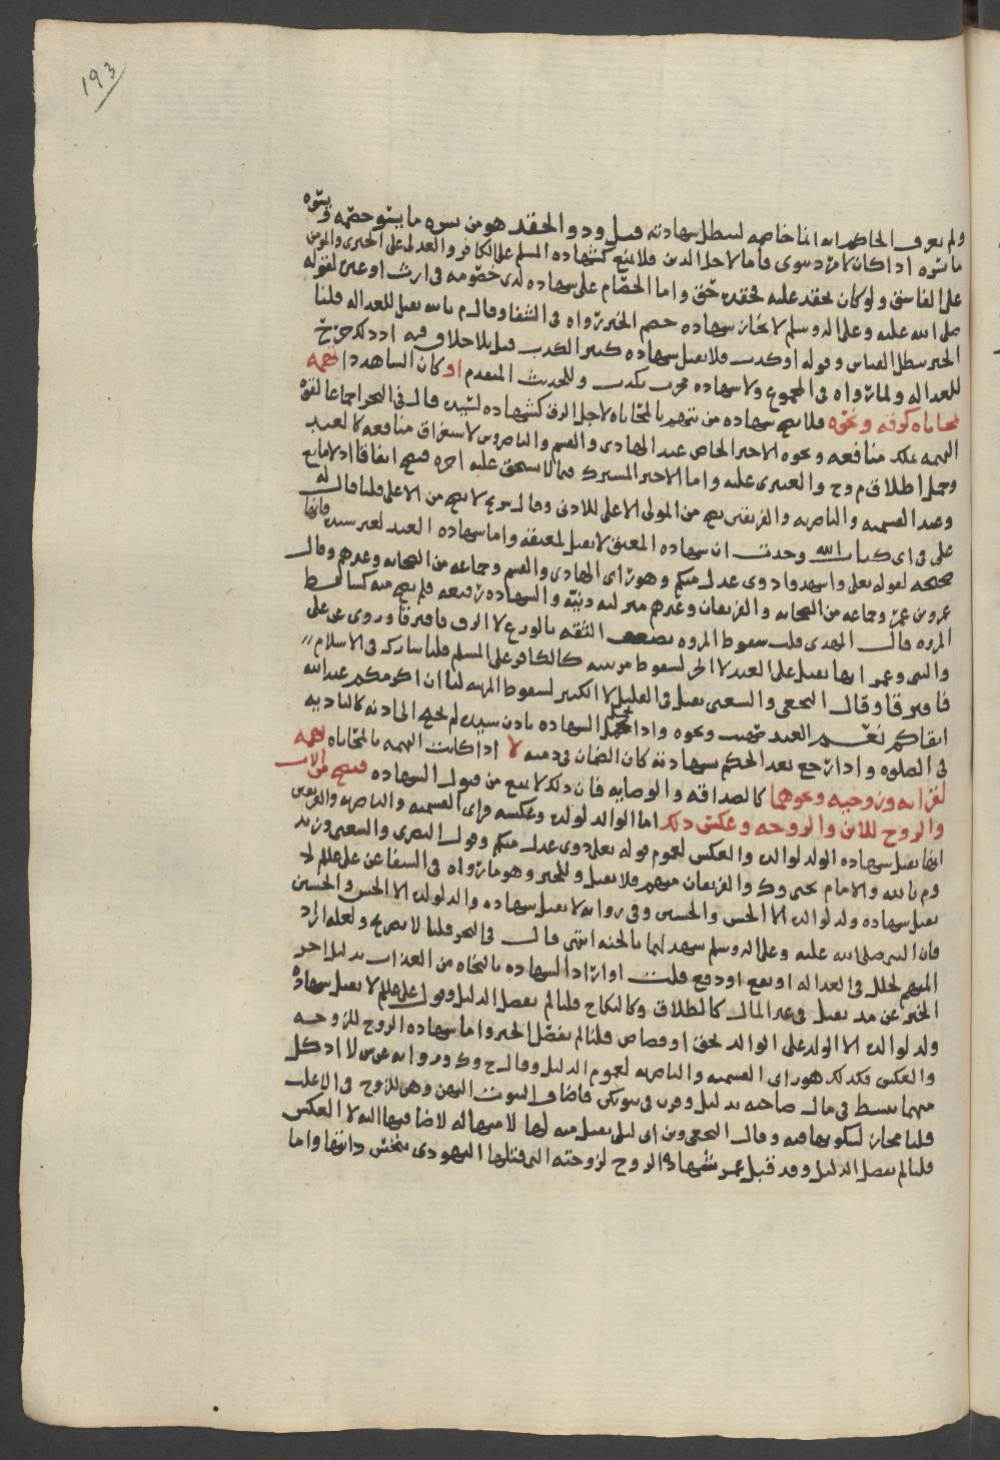 193
ولم يعرف الحاكم انه انما خاصمه لتبطل شهادته قيل وذو الحقد هو من يسره ما يسوء خصمه ويسوه
ما يسره اذا كان لامر دنيوي فاما لاجل الدين فلا يمنع كشهاده المسلم على الكافر والعدلى على الجبرى والمومن
على الفاسق ولو كان يحقد عليه لحقده حق واما الخصام على شهاده لدى خصومه فى ارث او عين لقوله
صلى الله عليه وعلى اله وسلم لا يجاز شهاده خصم الخبر رواه فى الشفا وقال م بالله يقبل للعداله قلنا
الخبر يبطل القياس وقوله او كذب فلا يقبل شهاده كثير الكذب قيل بلا خلاف فيه اذ ذلك جرح
للعداله ولما رواه فى المجموع ولا شهاده مجرب بكذب وللحديث المتقدم او كان الشاهد ذا تهمه
بمحاباه كرقه ونحوه فلا يصح شهاده من يتهم بالمحاباه لاجل الرق كشهاده لسيده قال فى البحر اجماعا لقوه
التهمه بملك منافعه ونحوه الاجير الخاص عند الهادى والقسم والناصر وس لاستغراق منافعه كالعبد
وجمل اطلاق م وح والعترى عليه واما الاجير المشترك فيما لا يستحق عليه اجره فيصح اتفاقا اذ لا مانع
وعند القسميه والناصريه والفريقين يصح من المولى الاعلى للادنى وقال شريح لا يصح من الاعلى قلنا قال له
على فى اى كتاب الله وجدت ان شهاده المعتق لا يقبل لمعتقه واما شهاده العبد لغير سيده فانها
صحيحه لقوله تعلى واشهدوا ذوى عدل منكم وهو راى الهادى والقسم وجماعه من الصحابه وغيرهم وقال
عمر وبن عمر وجماعه من الصحابه والفريقان وغيرهم منزلته دنيه والشهاده رفيعه فلم يصح منه كساقط
المروه قال المهدى قلت سقوط المروه يضعف الثقه بالورع لا الرق فافترقا وروى عن على
والنبى وعمر انها يقبل على العبد لا الحر لسقوط مرتبته كالكافر على المسلم قلنا شاركه فى الاسلام
فافترقا وقال النخعى والشعبى يقبل فى القليل لا الكثير لسقوط المرتبه لنا ان اكرمكم عند الله
اتقاكم نعم العبد صهيب ونحوه واذا تحمل الشهاده باذن سيده لم يحتج الى اذنه لتاديه
فى الصلوه واذا رجع بعد الحكم بشهادته كان الضمان فى ذمته لا اذا كانت التهمه بالمحاباه تهمه
لقرابه وزوجيه ونحوهما كالصداقه والوصايه فان ذلك لا يمنع من قبول الشهاده فيصح من الاب
والزوج للابن والزوجه وعكس ذلك اما الوالد لولده وعكسه فراى القسميه والناصريه والفريقين
انها يقبل شهاده الولد لوالده والعكس لعموم قوله تعلى ذوى عدل منكم وقول البصرى والشعبى وزيد
وم بالله والامام يحيى وك والفريقان متهم فلا يقبل وللخبر وهو ما رواه فى الشفا عن على عليلم لا
يقبل شهاده ولد لوالده الا الحسن والحسين وفى روايه لا يقبل شهاده والد لولده الا الحسن والحسين
فان النبى صلى الله عليه وعلى اله وسلم شهد لهما بالجنه انتهى قال فى البحر قلنا لا تصريح ولعله اراد
المتهم لخلل فى العداله او نفع او دفع قلت او اراد الشهاده بالنجاه من العذاب بدليل اخر
الخبر عن مد يقبل فى غير المال كالطلاق وكالنكاح قلنا لم يفصل الدليل وقول على عليلم لا يقبل شهاده
ولد لوالده الا الولد على الوالد بحق او قصاص قلنا لم يفصل الخبر واما شهاده الزوج للزوجه
والعكس فكذلك هو راى القسميه والناصريه لعموم الدليل وقال ح وك وروايه عن س لا اذ كل
منهما يبسط فى مال صاحبه بدليل وقرن فى بيوتكن فاضاف البيوت اليهن وهى للزوج فى الاغلب
قلنا مجاز لسكونها فيه وقال النخعى وبن ابى ليلى يقبل منه لها لا منها له لاضافتها اليه لا العكس
قلنا لم يفصل الدليل وقد قبل عمر شهاده الزوج لزوجته التى قتلها اليهودى بنخس دابتها واما